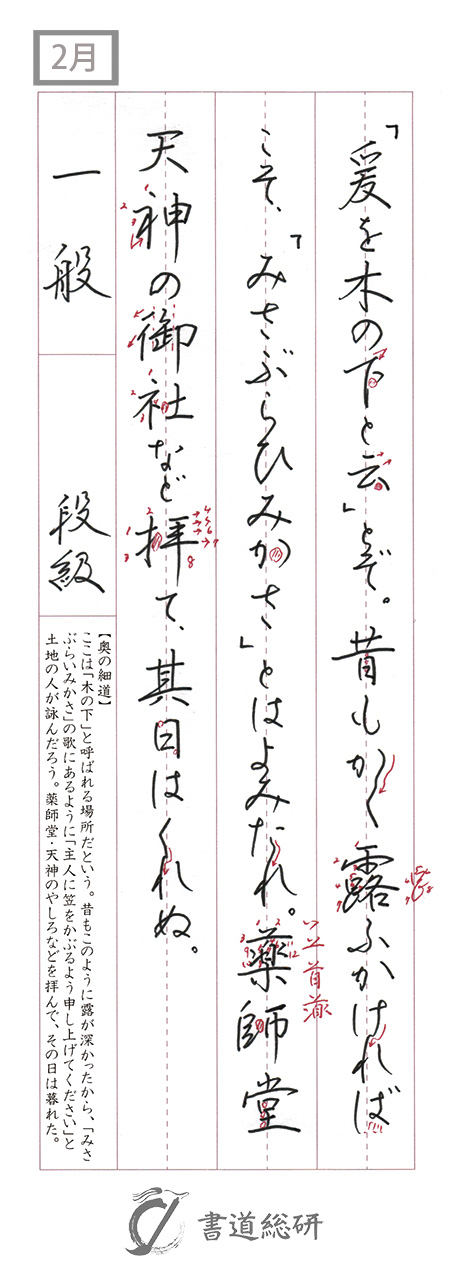 2月
「爰を木の下と云」とぞ。昔もかく露ふかければ
こそ、「みさぶらひみかさ」とはよみたれ。薬師堂
天神の御社など拝て、其日はくれぬ。
一般
段級
【奥の細道】
ここは「木の下」と呼ばれる場所だという。昔もこのように露が深かったから、「みさ
ぶらいみかさ」の歌にあるように「主人に笠をかぶるよう申し上げてください」と
土地の人が詠んだろう。薬師堂・天神のやしろなどを拝んで、その日は暮れた。
書道総研